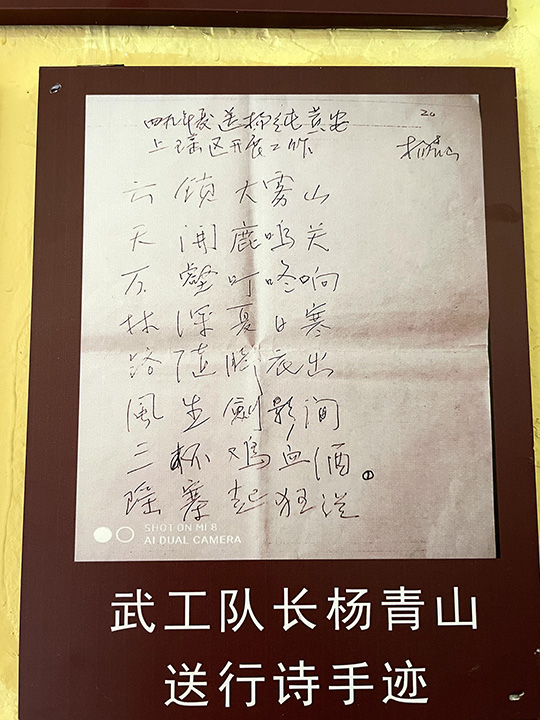 四九年夏送杨纯黄安
20
上瑶区开展工作
杨青山
云锁大雾山
天闭鹿鸣关
万壑叮咚响
林深夏日寒
路随脚底出
風生劍影间
三杯鸡血酒①
瑶寨起狂澜
SHOT ON MI 8
AI DUAL CAMERA
武工队长杨青山
送行诗手迹